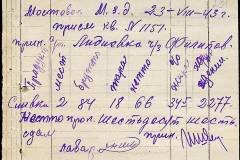 Мостовой М.з.д. 23-VIII-43 г.
прием. кв. N 1151.
прин. Лидиевка ч/з Филипов.
мест брутто тара нетто
Сливки 2 84 18 66 345 2277
Нетто проп. Шестьдесят шесть.
сдал прин.